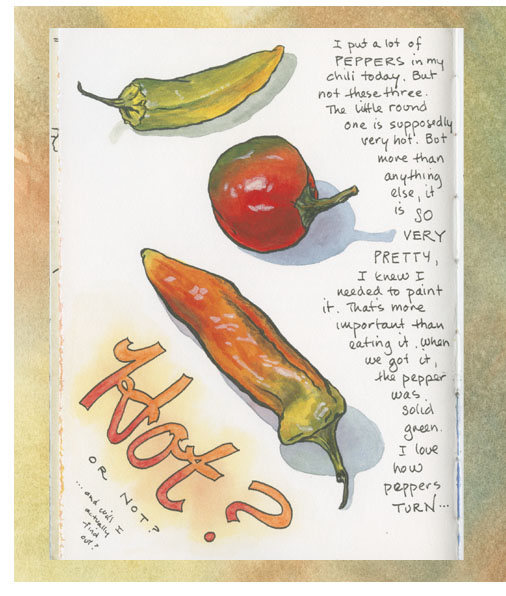 I put a lot of
PEPPERS in my
chili today. But
not these three.
The little round
one is supposedly
very hot. But
more than
anything
else, it
is SO
VERY
PRETTY,
I knew I
needed to paint
it. That's more
important than
eating it. When
we got it,
the pepper
was
solid
green.
I love
how
peppers
TURN...
Hot?
OR NOT?
...and will I
actually
find
out?